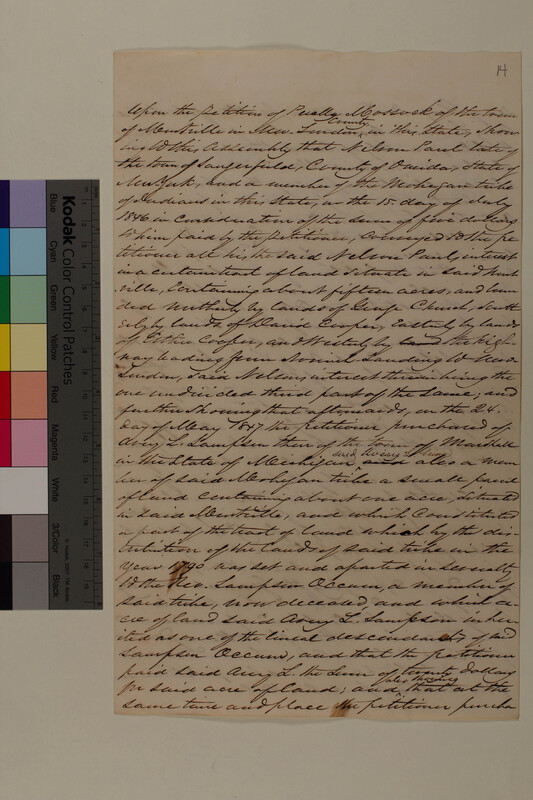 14
Upon the petition of Puella Mossock of the town
of Montville in New London County, in this State, show
ing to this Assembly that Nelson Paul late of
the town of Sangerfield, County of Oneida, State of
New York, and a member of the Mohegan tribe
of Indians in this State, on the 15 day of July
1846 in consideration of the sum of five dollars
to him paid by the petitioner, conveyed to the pe
titioner all his the said Nelson Paul's interest
in a certain tract of land situate in said Mont
ville, containing about fifteen acres, and boun
ded Northerly by lands of George Church, South
erly by lands of David Cooper, Easterly by lands
of Cooper, and Westerly by land the high
way leading from Norwich Landing to New
London, said Nelson's interest therein being the
one undivided third part of the same, and
further showing that afterwards, on the 24.
day of May 1847 the petitioner purchased of
Avery L. Sampson then of the town of Marshall
in the State of Michigan said Avery being and also a mem
ber of said Mohegan tribe a small piece
of land containing about one acre, situated
in said Montville, and which constituted
a part of the tract of land which by the dis-
tribution of the lands of said tribe in the
year 1790 was set and aparted in severalty
to the Rev. Sampson Occum, a member of
said tribe, now deceased, and which a-
cre of land said Avery L. Sampson inher-
ited as one of the lineal descendants of said
Sampson Occum, and that the petitioner
paid said Avery L. the sum of twenty dollars
for said acre of land; and also showing that at the
same time and place the petitioner purcha
Kodak Color Control Patches
Blue
Cyan
Green
Yellow
Red
Magenta
White
3/Color
Black